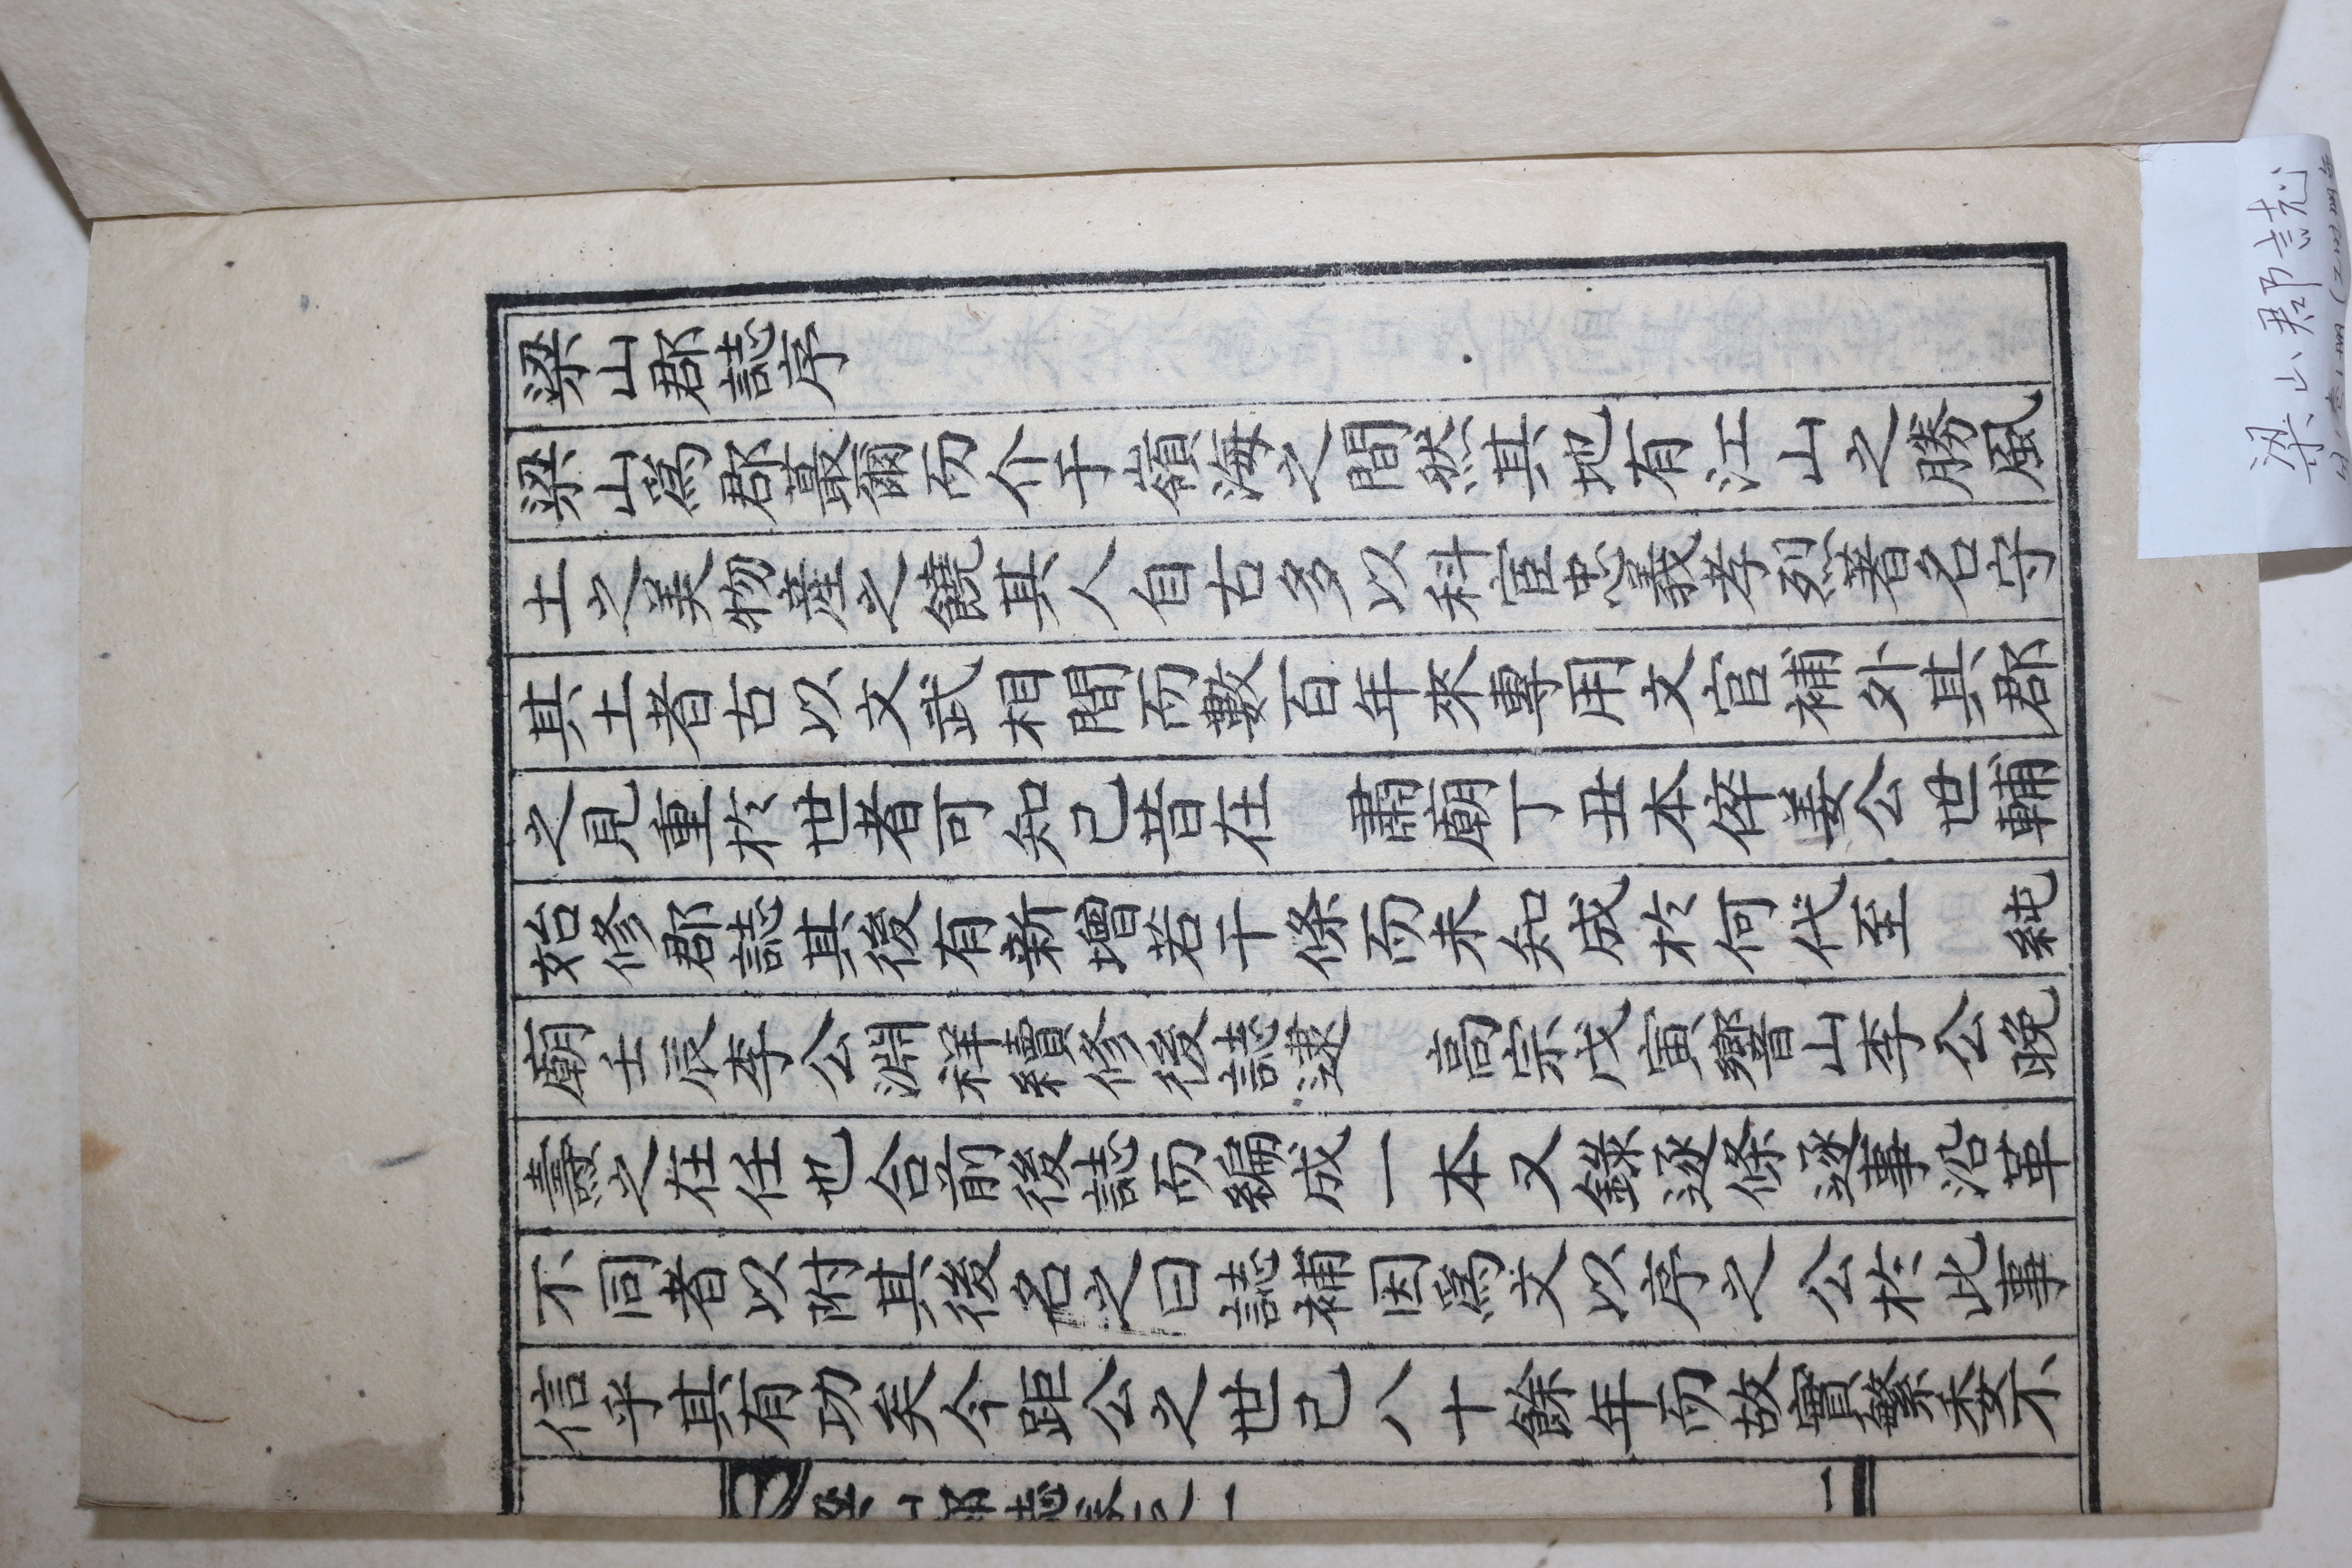 梁山郡誌序
梁山爲郡蕞爾而介于嶺海之間然其地有江山之勝風
土之美物產之饒其人自古多以科宦忠義孝烈著名守
其土者古以文武相間而數百年來專用文官補外其郡
之見重於世者可知已昔在 肅廟丁丑本倅姜公世輔
始修郡誌其後有新增若干條而未知成於何代至 純
廟壬辰李公淵祥續修後誌逮 高宗戊寅響山李公晚
燾之在任也合前後誌而編成一本又錄逐條逐事沿革
不同者以附其後名之曰誌補因爲文以序之公於此事
信乎其有功矣今距公之世已八十餘年而故實繁委不
梁山郡誌卷之一 一
梁山郡誌